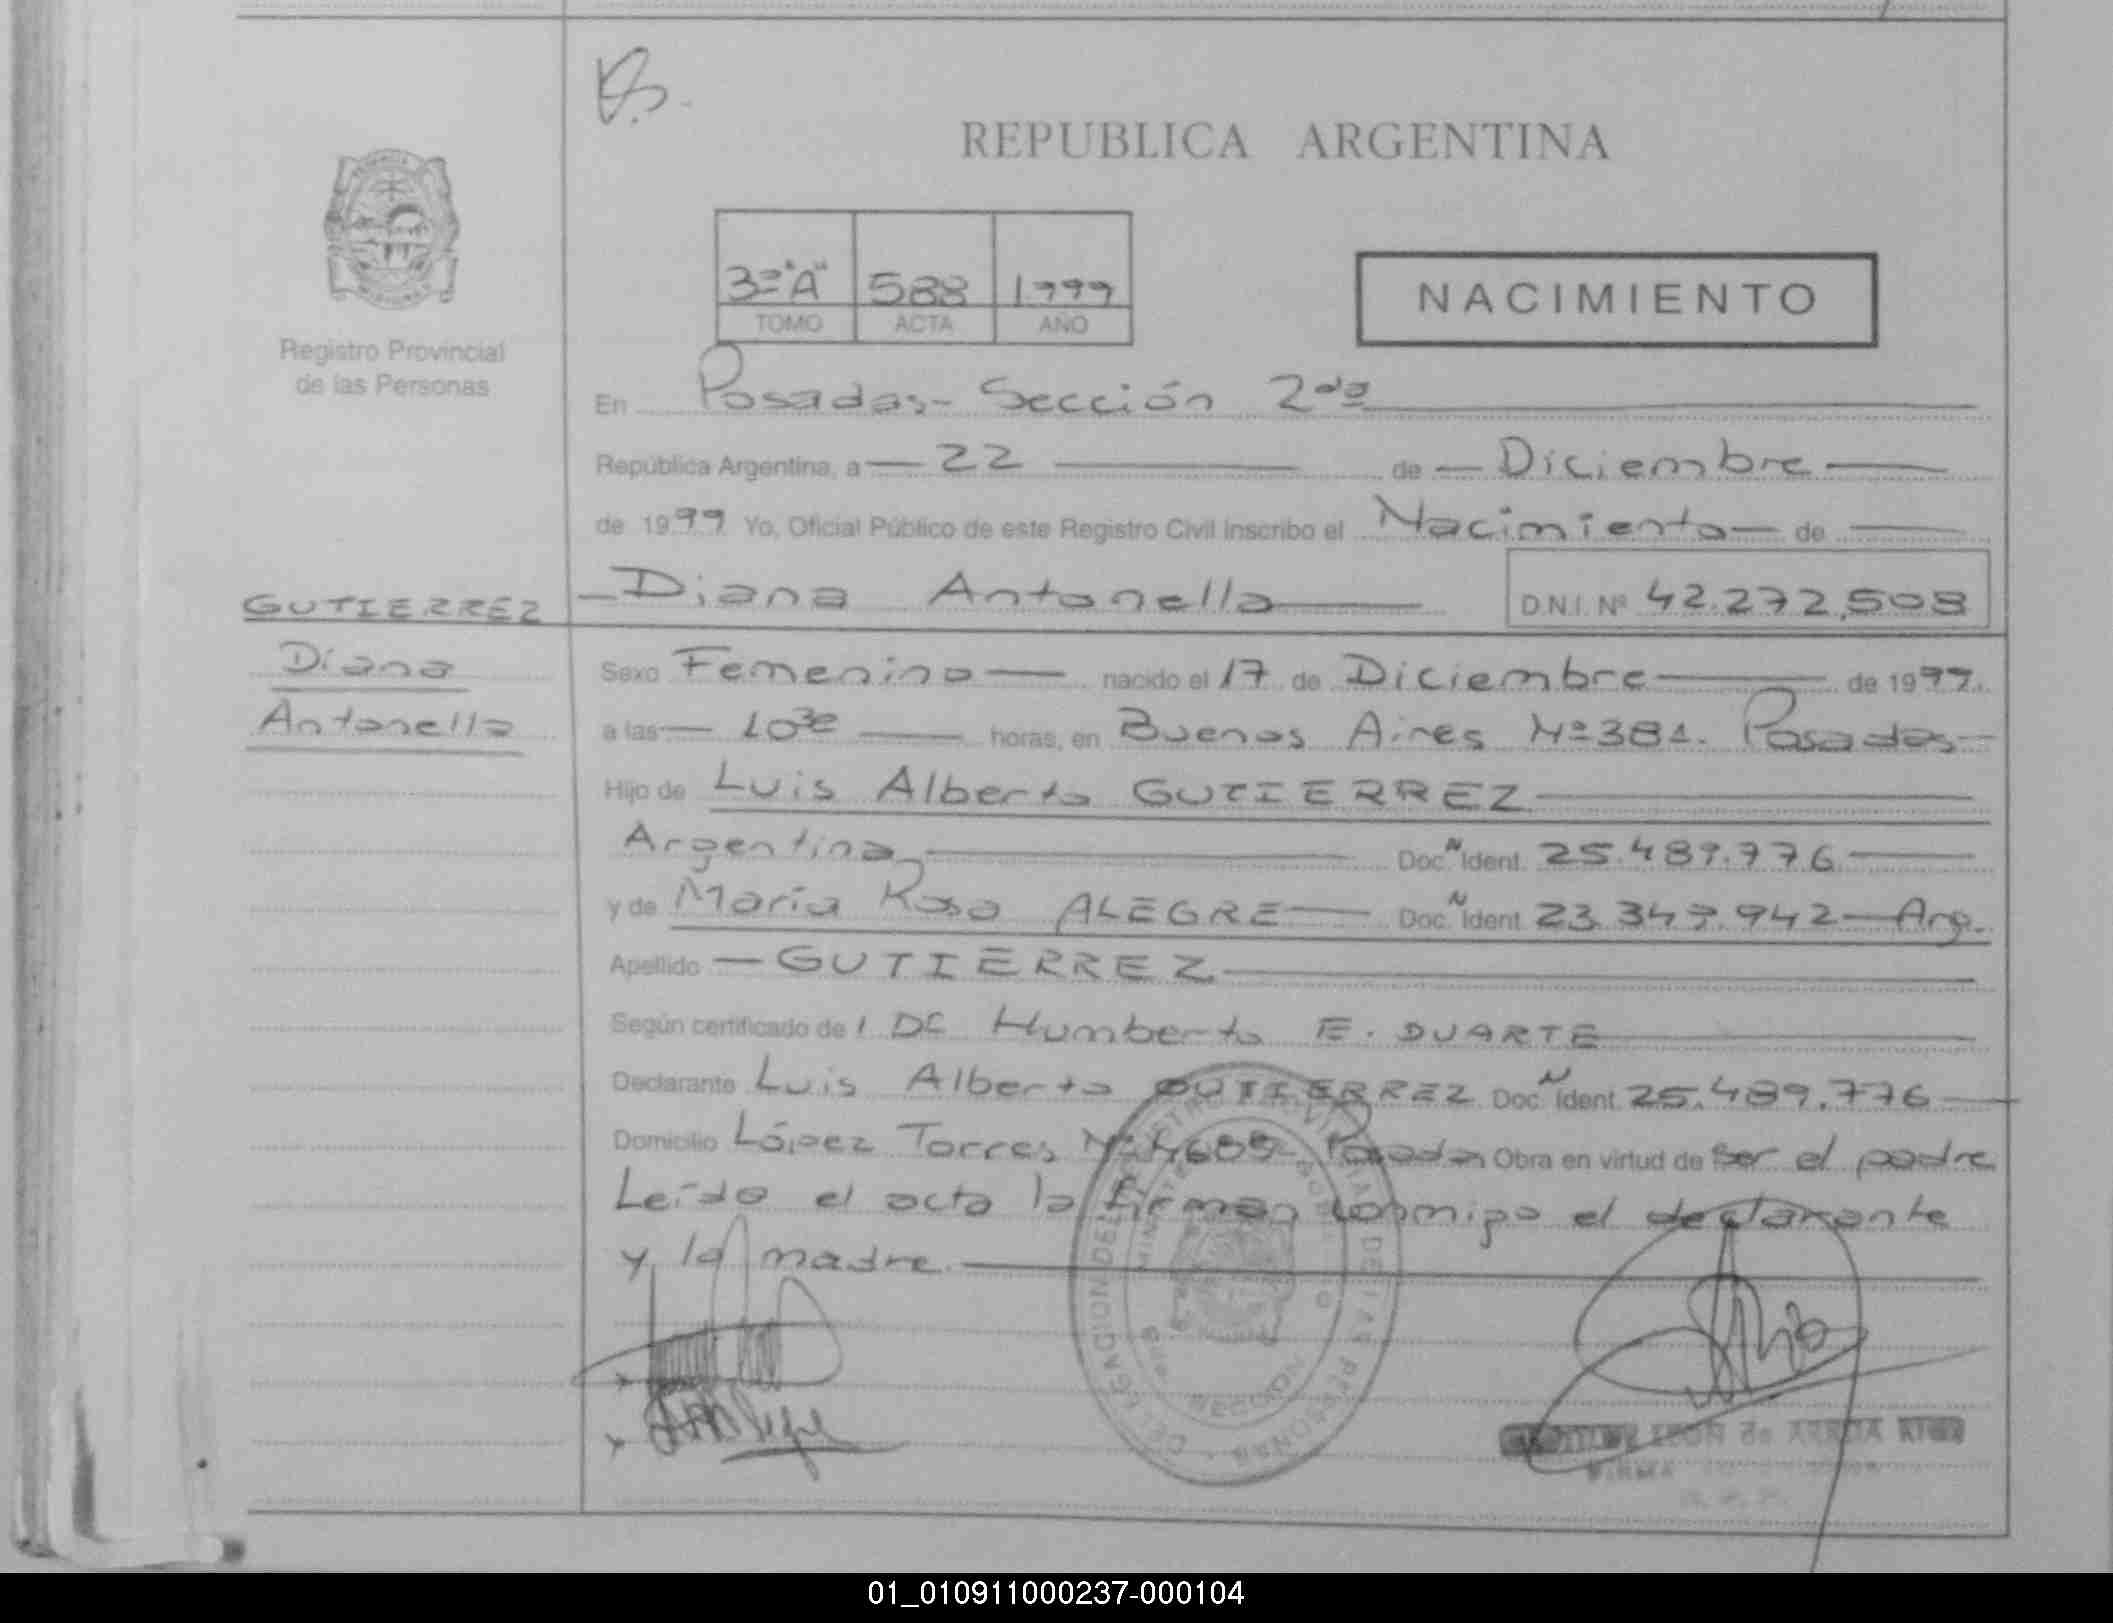 REPUBLICA ARGENTINA
3º "A" 588 1999
TOMO ACTA AÑO
NACIMIENTO
Registro Provincial
de las Personas
En Posadas - Sección 2da
República Argentina, a 22 de Diciembre
de 1999 Yo, Oficial Público de este Registro Civil inscribo el Nacimiento de
Diana Antonella D.N.I. Nº 42.272.508
GUTIERREZ
Diana
Antonella
Sexo Femenino nacido el 17 de Diciembre de 1999.
a las 10 30 horas, en Buenos Aires Nº 381. Posadas
Hijo de Luis Alberto GUTIERREZ
Argentina Doc. N Ident. 25.489.776
y de María Rosa ALEGRE Doc. N Ident. 23.349.942 Arg.
Apellido GUTIERREZ
Según certificado de l Dr Humberto E. DUARTE
Declarante Luis Alberto GUTIERREZ Doc. N Ident. 25.489.776
Domicilio López Torres Nº 4689 Posadas Obra en virtud de ser el padre
Leído el acta la firman conmigo el declarante
y la madre.
DELEGACION DEL REGISTRO PROVINCIAL DE LAS PERSONAS
SECCION
LEON de
FIRMA
01_010911000237-000104